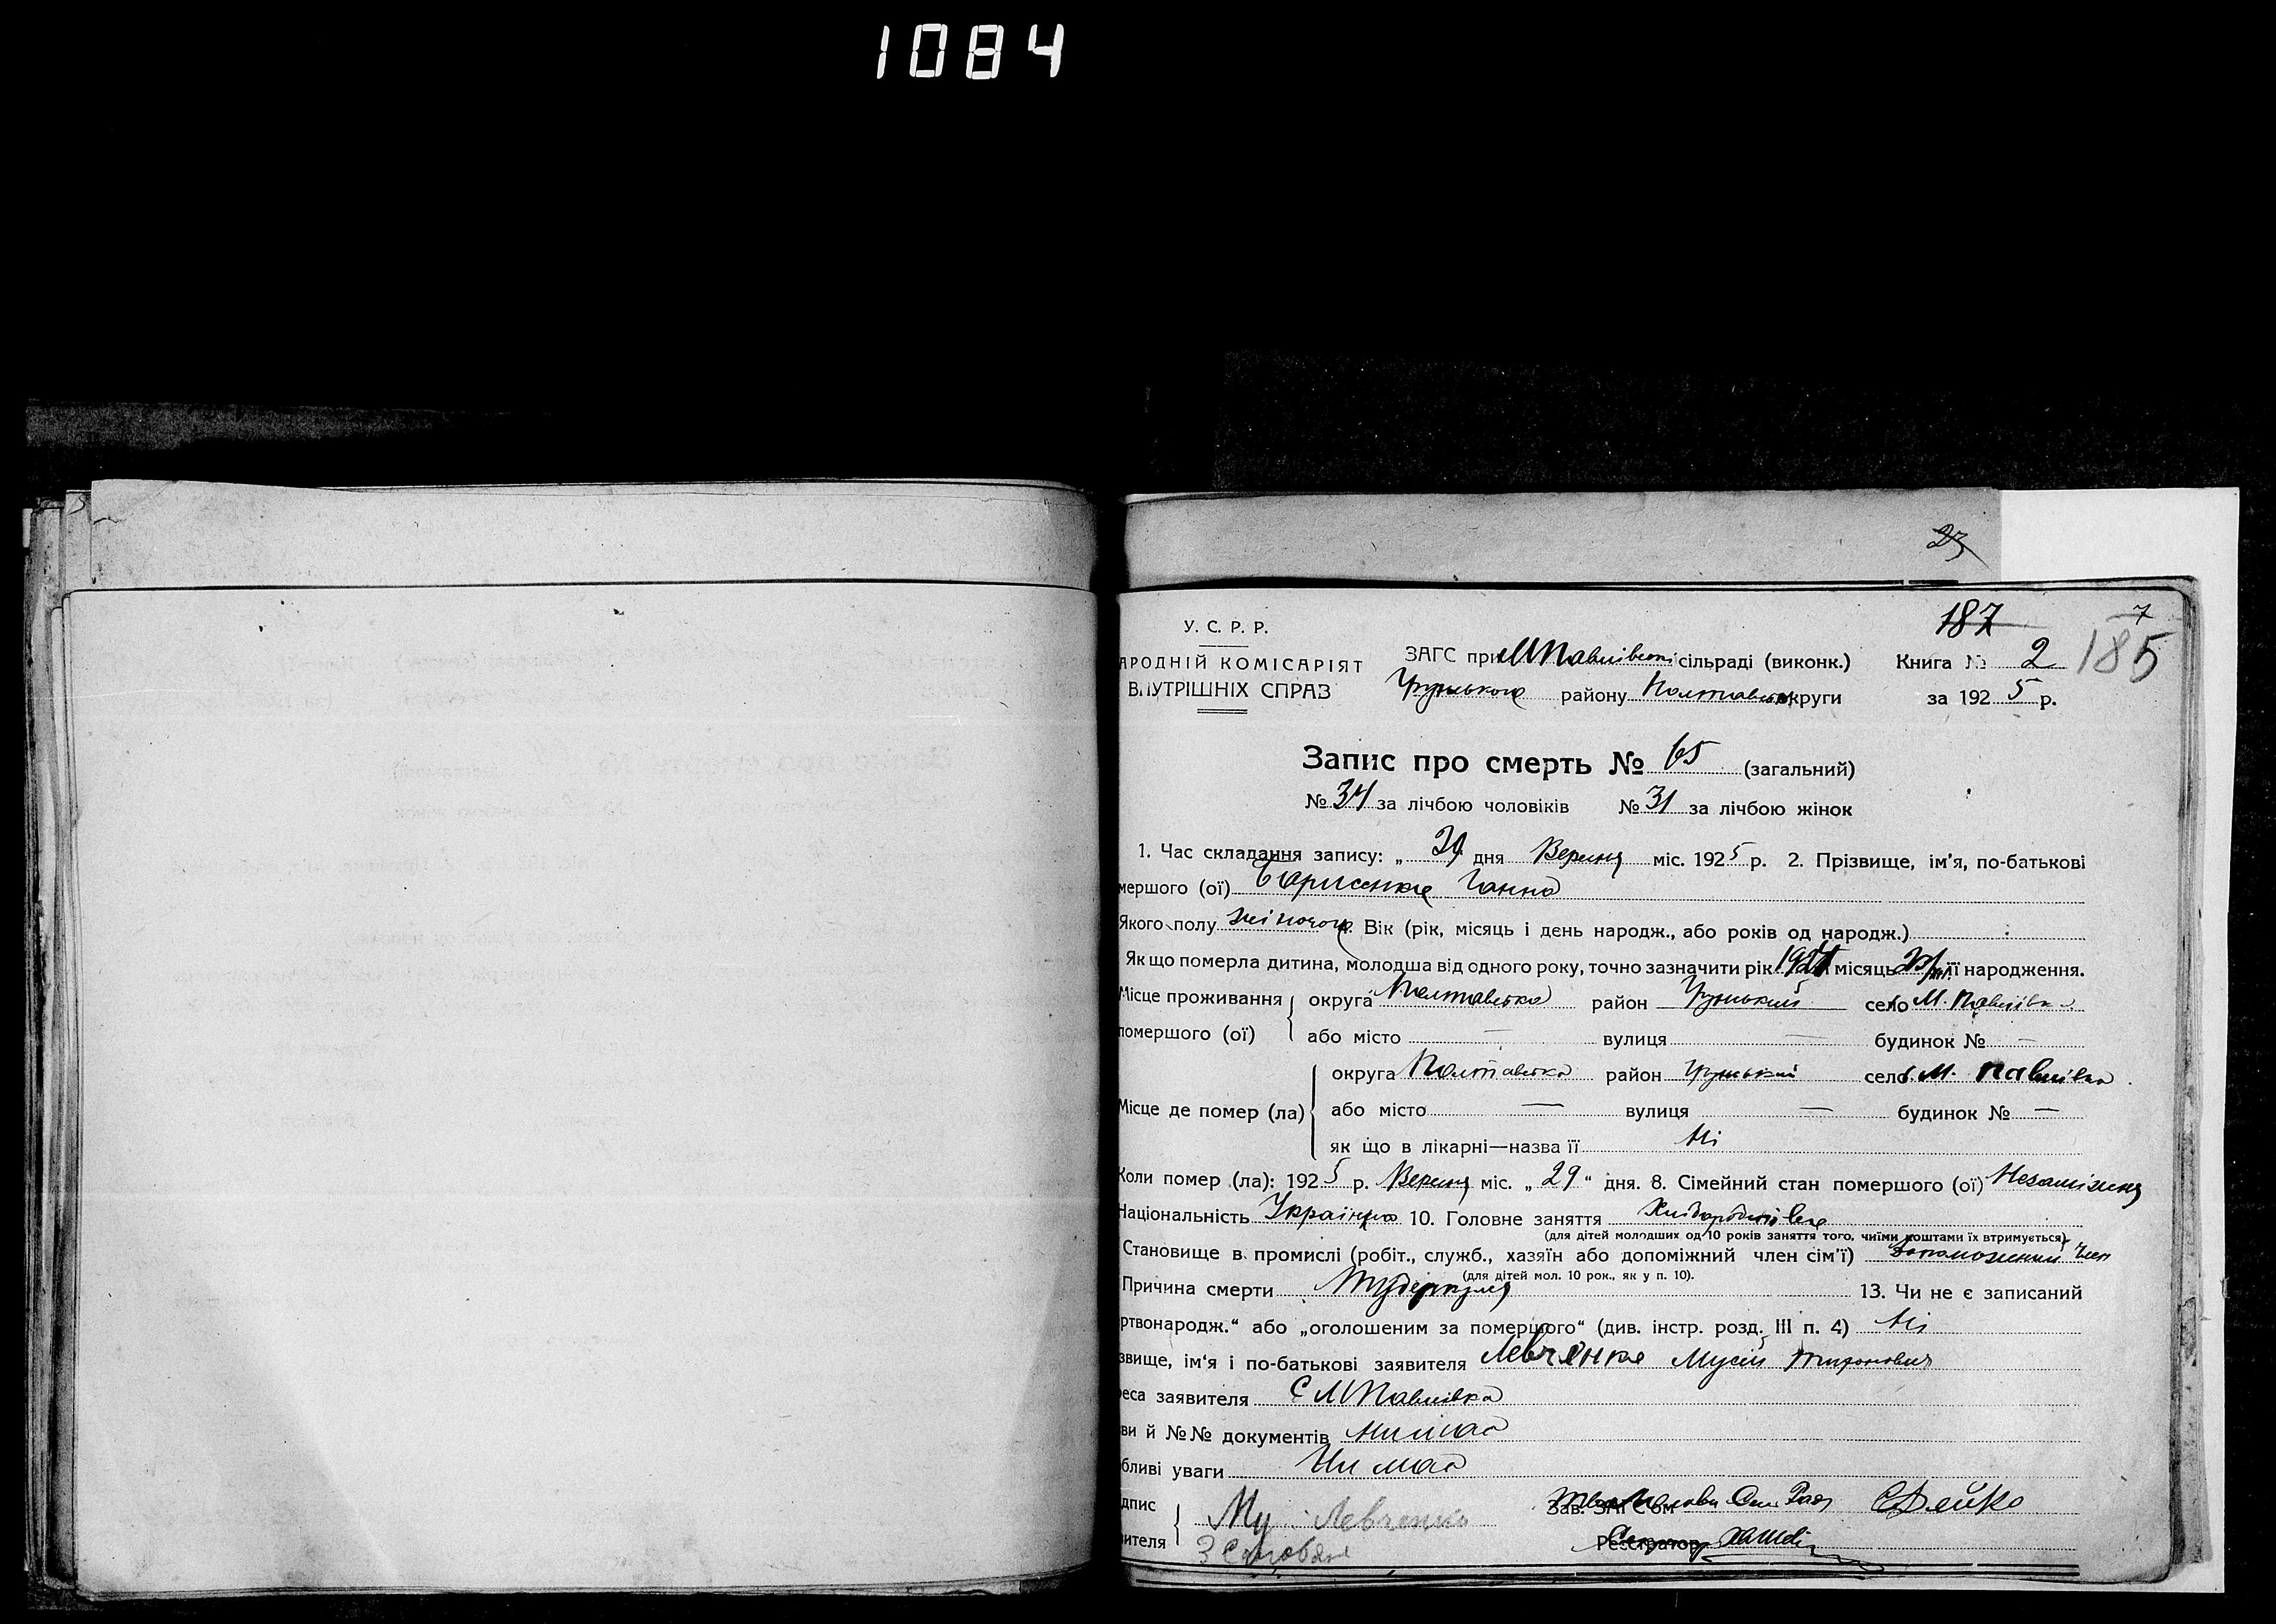 1084
23
187
7
185
У. С. Р. Р.
АРОДНІЙ КОМІСАРІЯТ
ВНУТРІШНІХ СПРАВ
ЗАГС при МПавлівські сільраді (виконк.) Книга № 2
Грунського району Полтавської округи за 1925 р.
Запис про смерть № 65 (загальний)
№ 34 за лічбою чоловіків № 31 за лічбою жінок
1. Час складання запису: „ дня Вересня міс. 1925 р. 2. Прізвище, ім'я, по-батькові
мершого (ої) Борисенко Ганна
Якого полу жіночого Вік (рік, місяць і день народж., або років од народж.)
Як що померла дитина, молодша від одного року, точно зазначити рік місяць її народження.
Місце проживання округа Полтавська район Грунський село М. Павлівка
помершого (ої) або місто — вулиця — будинок № —
округа Полтавська район Грунський село М. Павлівка
Місце де помер (ла) або місто — вулиця — будинок № —
як що в лікарні—назва її Ні
Коли помер (ла): 1925 р. Вересня міс. „29“ дня. 8. Сімейний стан помершого (ої) Незаміжня
Національність Українка 10. Головне заняття Хлібороб
(для дітей молодших од 10 років заняття того, чиїми коштами їх втримується)
Становище в промислі (робіт., служб., хазяїн або допоміжний член сім'ї) Допоможний член
(для дітей мол. 10 рок., як у п. 10).
Причина смерти Туберкульоз 13. Чи не є записаний
ртвонародж.“ або „оголошеним за помершого“ (див. інстр. розд. III п. 4) Ні
звище, ім'я і по-батькові заявителя Левченко Мусій
еса заявителя С МПавлівка
ви й №№ документів Нимає
бливі уваги Ни має
дпис Му Левченко Зав. ЗАГСом Дейко
вителя Реєстратор